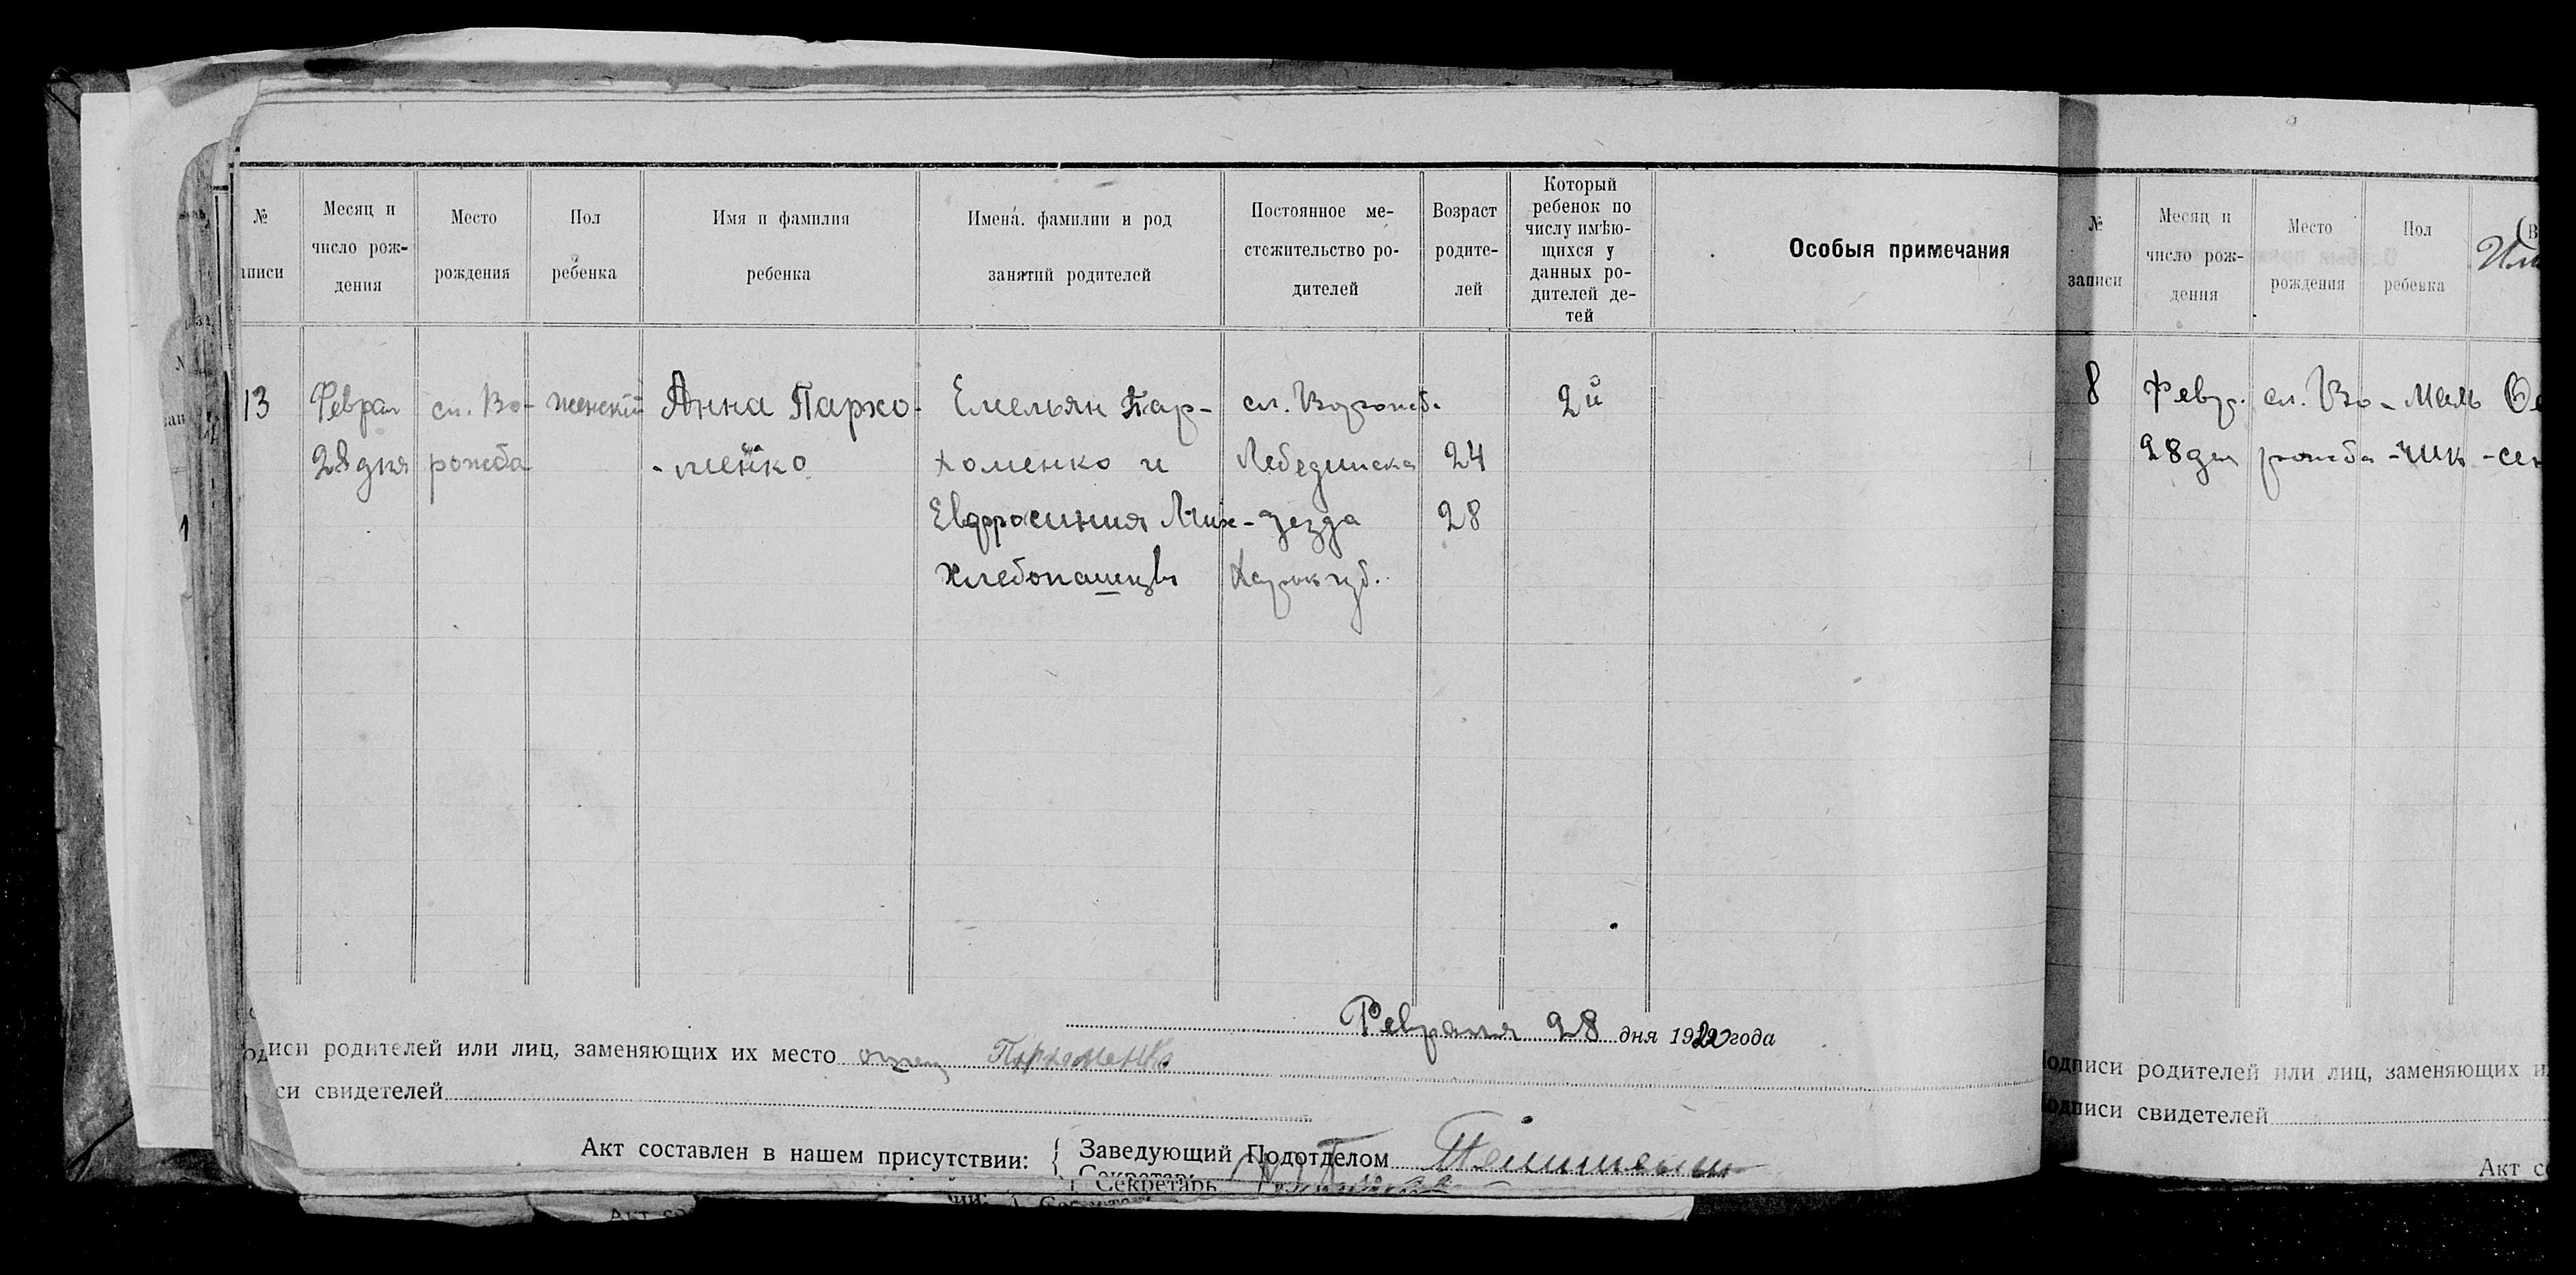 №
аписи
Месяц и
число рож-
дения
Место
рождения
Пол
ребенка
Имя и фамилия
ребенка
Имена. фамилии и род
занятий родителей
Постоянное ме-
стожительство ро-
дителей
Возраст
родите-
лей
Который
ребенок по
числу имѣю-
щихся у
данных ро-
дителей де-
тей
Особыя примечания
13
Феврал
28 дня
сл. Во-
рожба
женский
Анна Пархо-
-менко
Емельян Пар-
хоменко и
Евфросиния Мих-
Хлебопашцы
сл. Ворожб.
Лебединска
уезда
Харьк губ.
24
28
2й
Февраля 28 дня 1920 года
одписи родителей или лиц, заменяющих их место отец Пархоменко
си свидетелей
Акт составлен в нашем присутствии:
Заведующий Подотделом
Секретарь
Секретарь
№
записи
Месяц и
число рож-
дения
Место
рождения
Пол
ребенка
8
Февр.
28 дня
сл. Во-
рожба
Маль
-чик
-сен
Подписи родителей или лиц, заменяющих и
Подписи свидетелей
Акт со